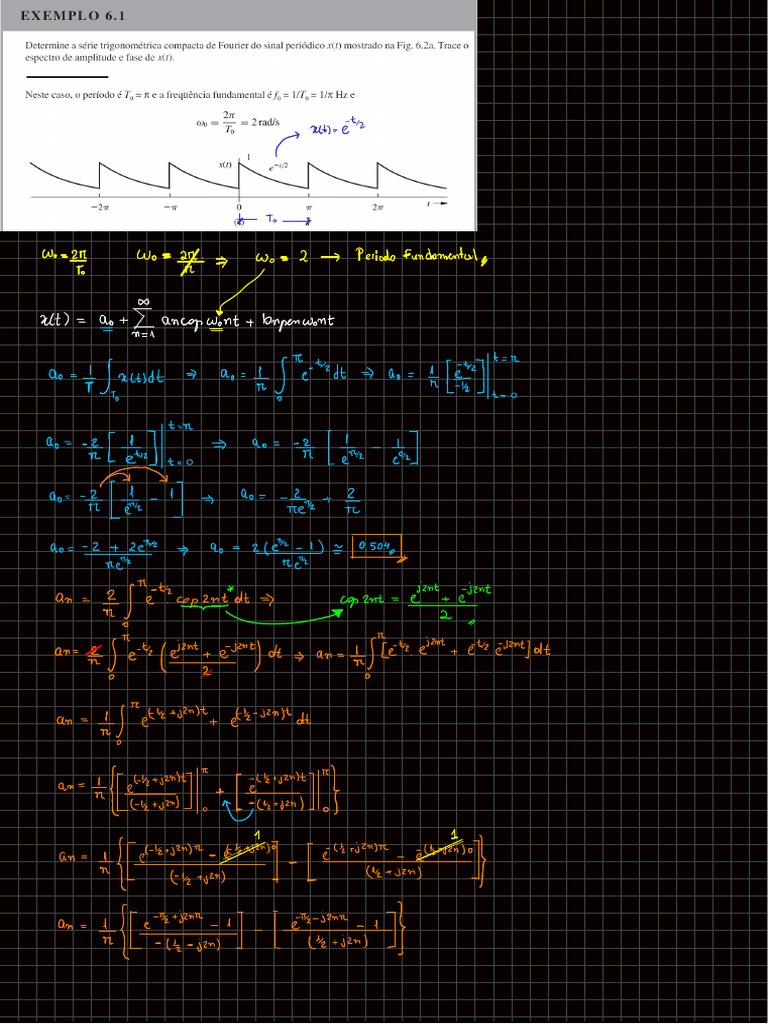 EXEMPLO 6.1
Determine a série trigonométrica compacta de Fourier do sinal periódico x(t) mostrado na Fig. 6.2a. Trace o
espectro de amplitude e fase de x(t).
Neste caso, o período é T₀ = π e a freqüência fundamental é f₀ = 1/T₀ = 1/π Hz e
ω₀ = 2π/T₀ = 2 rad/s
x(t) = e^(-t/2)
x(t) 1 e^(-t/2)
−2π −π 0 π 2π t
T₀
ω₀ = 2π/T₀ ω₀ = 2π/π ⇒ ω₀ = 2 → Periodo Fundamental
x(t) = a₀ + ∑_(n=1)^∞ an cos ω₀nt + bn sen ω₀nt
a₀ = 1/T ∫_(T₀) x(t)dt ⇒ a₀ = 1/π ∫_0^π e^(-t/2) dt ⇒ a₀ = 1/π [e^(-t/2)/(-1/2)] |_(t=0)^(t=π)
a₀ = -2/π [1/e^(t/2)] |_(t=0)^(t=π) ⇒ a₀ = -2/π [1/e^(π/2) - 1/e^(0/2)]
a₀ = -2/π [1/e^(π/2) - 1] ⇒ a₀ = -2/(πe^(π/2)) + 2/π
a₀ = (-2 + 2e^(π/2))/(πe^(π/2)) ⇒ a₀ = 2(e^(π/2) - 1)/(πe^(π/2)) ≅ 0.504
an = 2/π ∫_0^π e^(-t/2) cos 2nt* dt ⇒ cos 2nt = (e^(j2nt) + e^(-j2nt))/2
an = 2/π ∫_0^π e^(-t/2) ((e^(j2nt) + e^(-j2nt))/2) dt ⇒ an = 1/π ∫_0^π [e^(-t/2) . e^(j2nt) + e^(-t/2) e^(-j2nt)] dt
an = 1/π ∫_0^π e^(-1/2 + j2n)t + e^(-1/2 - j2n)t dt
an = 1/π {[e^(-1/2 + j2n)t/(-1/2 + j2n)] |_0^π + [e^-(1/2 + j2n)t/-(1/2 + j2n)] |_0^π}
an = 1/π {[(e^(-1/2 + j2n)π - e^(-1/2 + j2n)0 1)/(-1/2 + j2n)] - [(e^-(1/2 + j2n)π - e^-(1/2 + j2n)0 1)/(1/2 + j2n)]}
an = 1/π {[(e^(-π/2 + j2nπ) - 1)/-(1/2 - j2n)] - [(e^(-π/2 - j2nπ) - 1)/(1/2 + j2n)]}